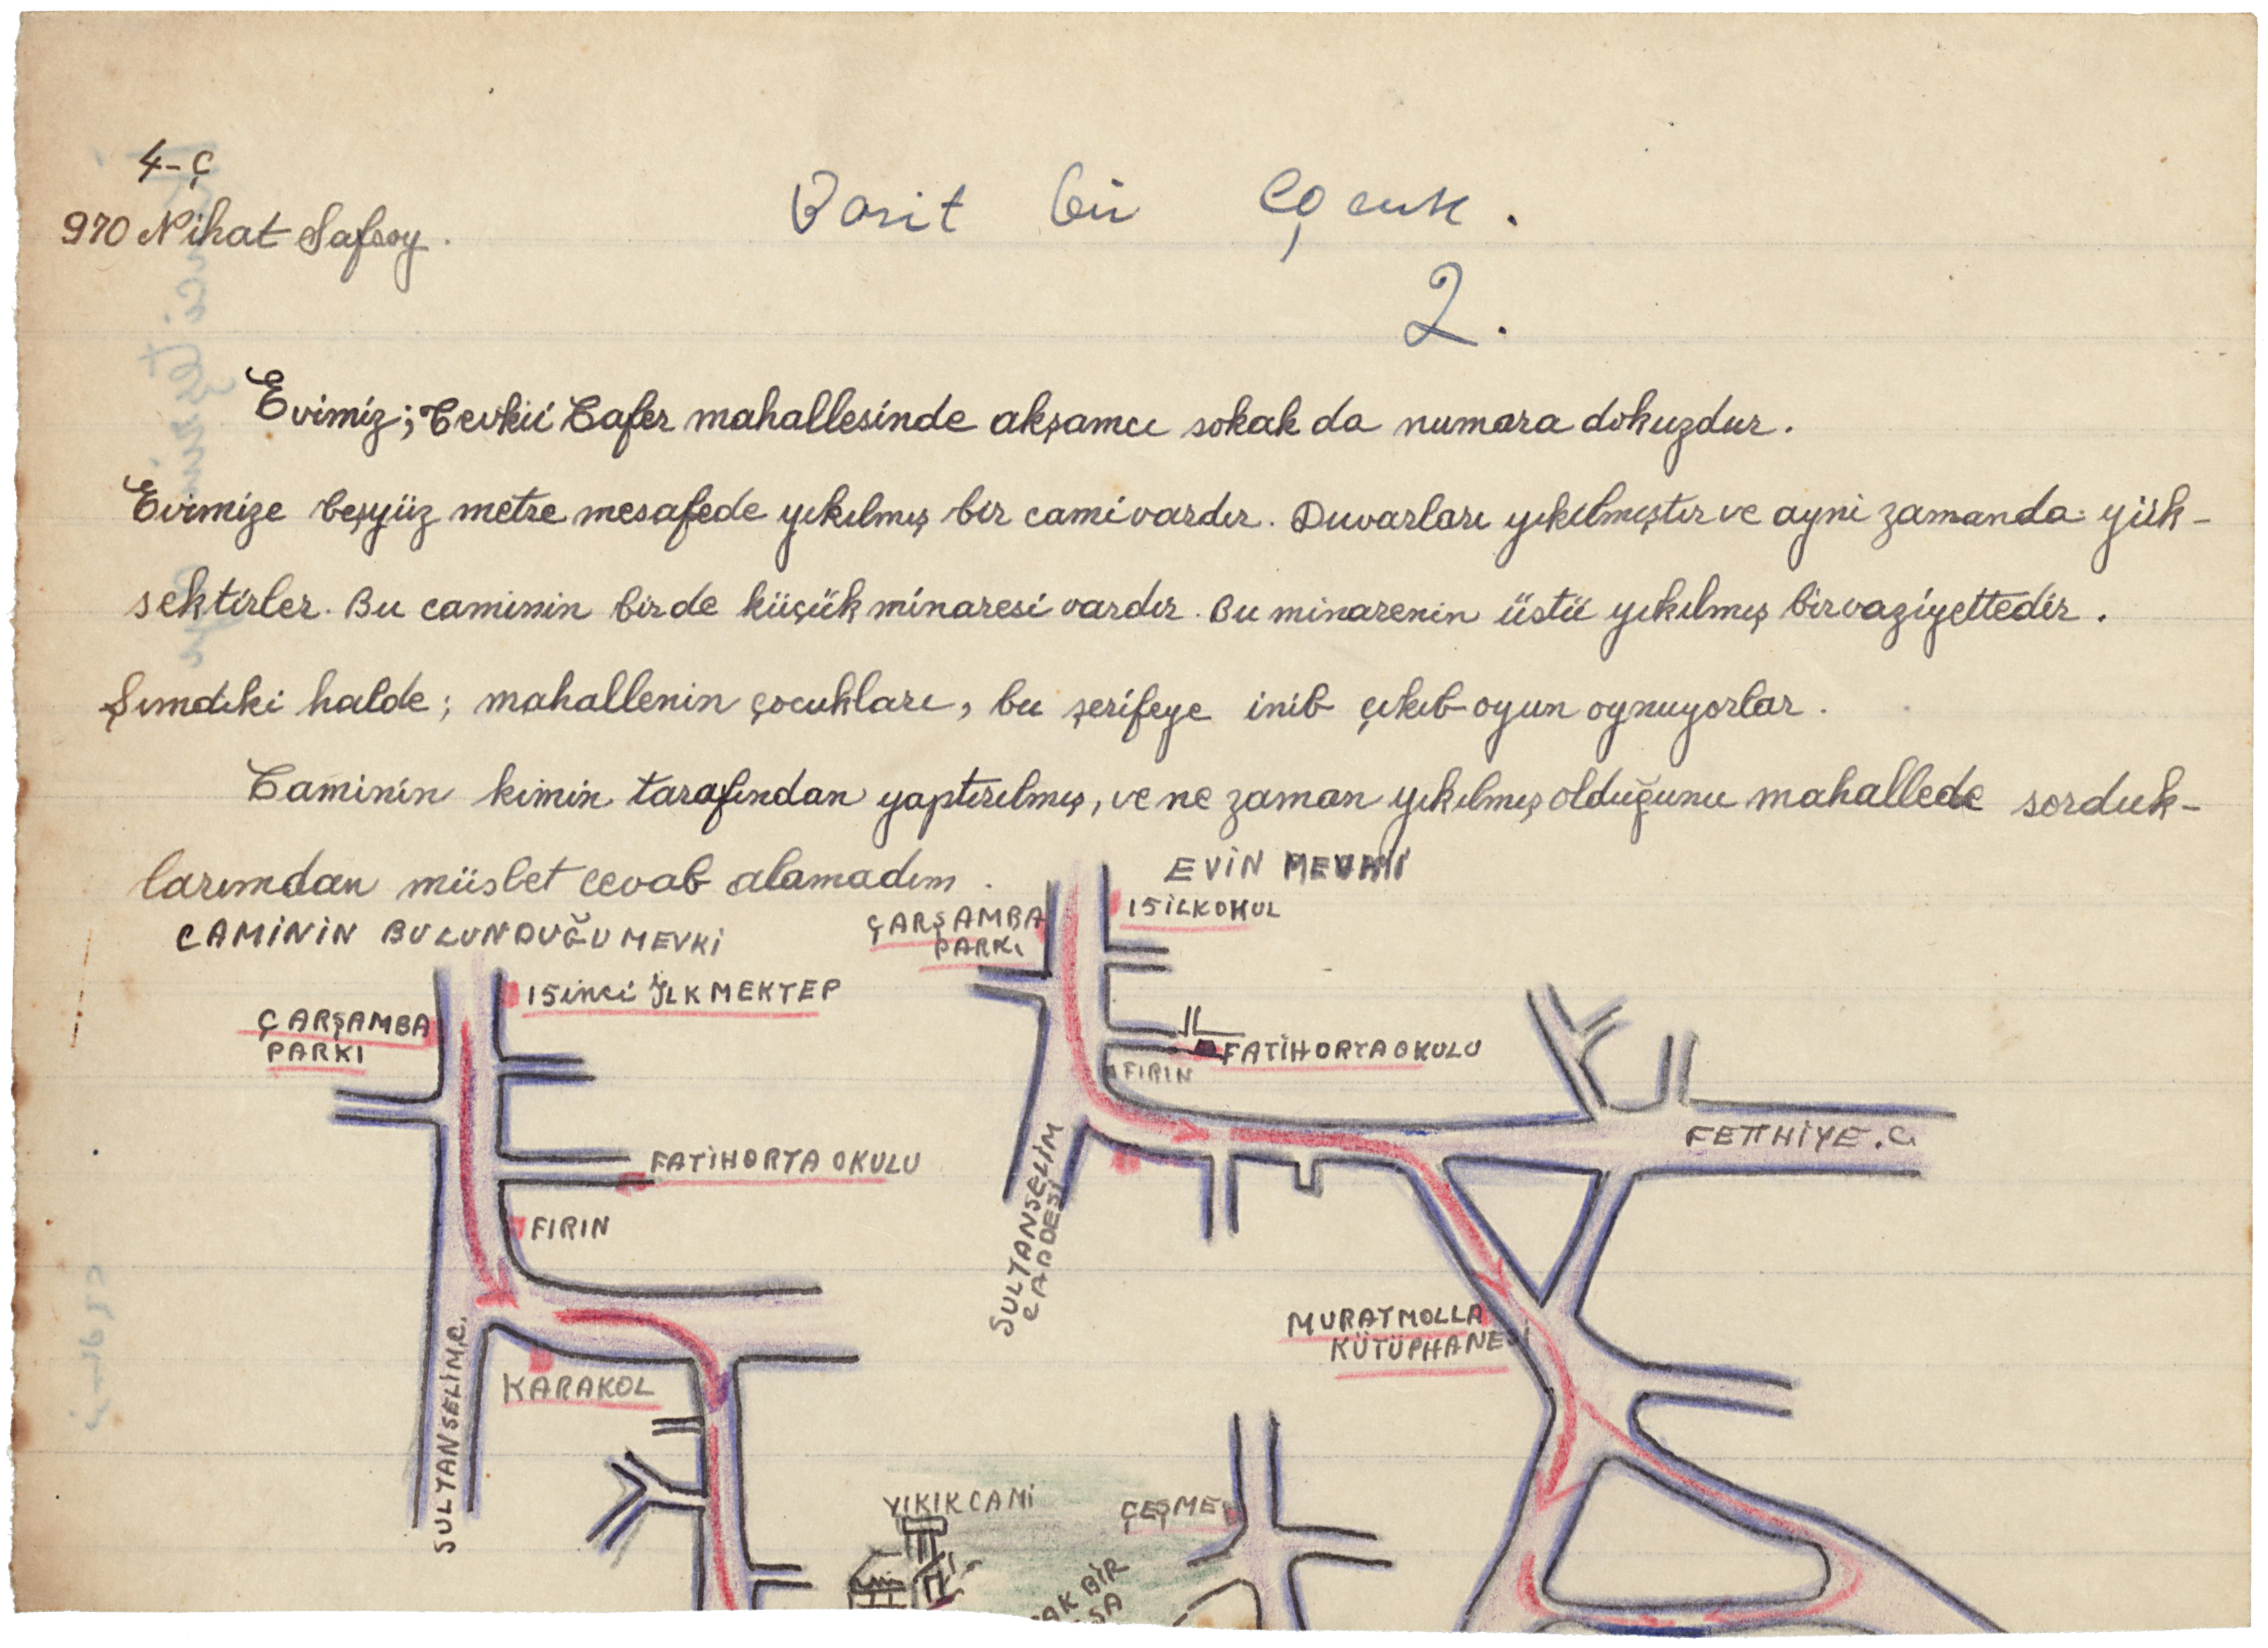 4-Ç
970 Nihat Safsoy.
Basit bir Çocuk.
2.
Evimiz; Cevkii Cafer mahallesinde akşamcı sokak da numara dokuzdur.
Evimize beşyüz metre mesafede yıkılmış bir cami vardır. Duvarları yıkılmıştır ve ayni zamanda yük-
sektirler. Bu caminin birde küçük minaresi vardır. Bu minarenin üstü yıkılmış bir vaziyettedir.
Şımdıki halde; mahallenin çocukları, bu şerifeye inib çıkıb oyun oynuyorlar.
Caminin kimin tarafından yaptırılmış, ve ne zaman yıkılmış olduğunu mahallede sorduk-
larımdan müsbet cevab alamadım.
EVİN MEVKİİ
CAMİNİN BULUNDUĞU MEVKİ
ÇARŞAMBA
PARKI
15 İLKOKUL
15inci İLK MEKTEP
ÇARŞAMBA
PARKI
FATİH ORTAOKULU
FIRIN
FETHİYE.C.
FATİH ORTA OKULU
FIRIN
SULTANSELİM
CADDESİ
MURATMOLLA
KÜTÜPHANESİ
KARAKOL
SULTANSELİM.C.
YIKIK CAMİ
ÇEŞME
BİR